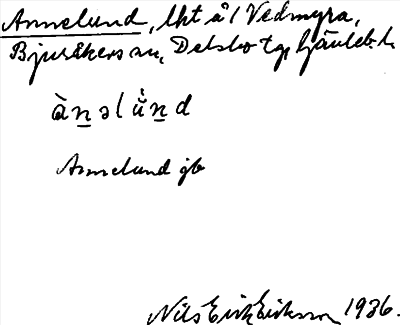 Annelund, lht å l Vedmyra,
Bjuråkers sn, Delsbo tg, Gävleb. l.
àn̲əlǘn̲d
Annelund gb
Nils Erik Eriksson 1936.